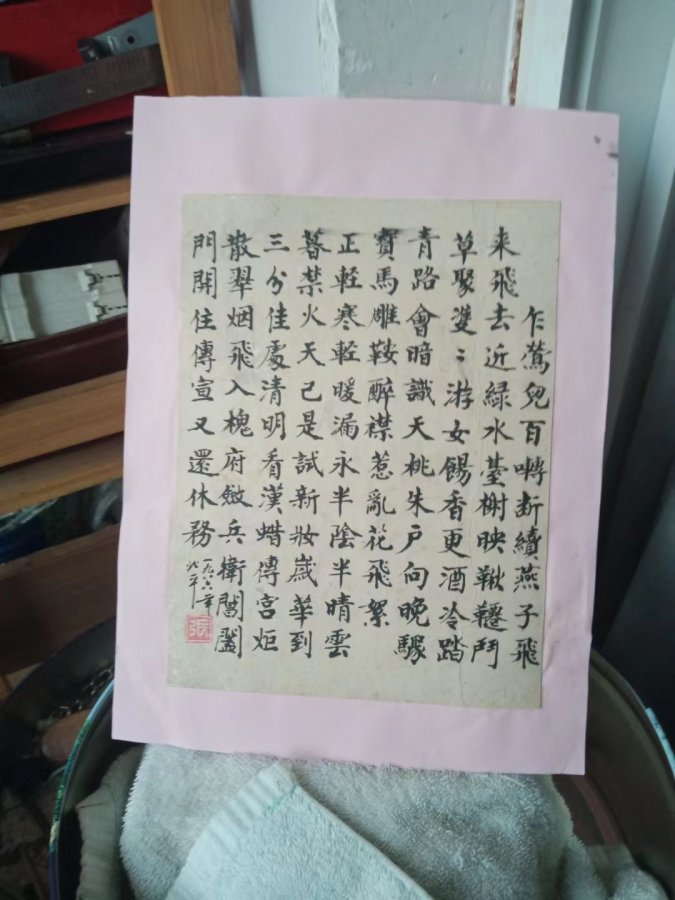 乍鶯兒百囀断續燕子飛
来飛去近綠水臺榭映鞦韆鬥
草聚雙〻游女餳香更酒冷踏
青路會暗識天桃朱户向晚驟
寶馬雕鞍醉襟惹亂花飛絮
正軽寒軽暖漏永半陰半晴雲
暮禁火天己是試新妝歲華到
三分佳處清明看漢蜡傳宮炬
散翠烟飛入槐府斂兵衛閶闔
門開住傳宣又還休務
張